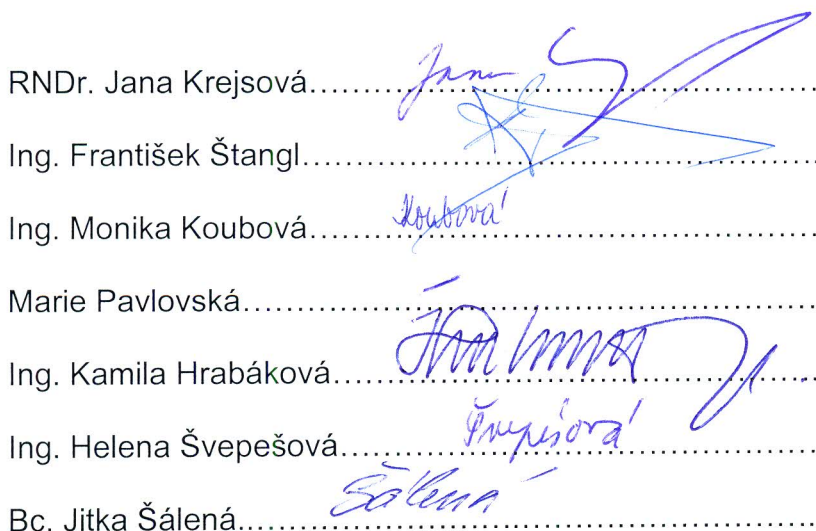 RNDr. Jana Krejsová.......... Jana
Ing. František Štangl..........
Ing. Monika Koubová.......... Koubová
Marie Pavlovská..........
Ing. Kamila Hrabáková..........
Ing. Helena Švepešová.......... Švepešová
Bc. Jitka Šálená.......... Šálená